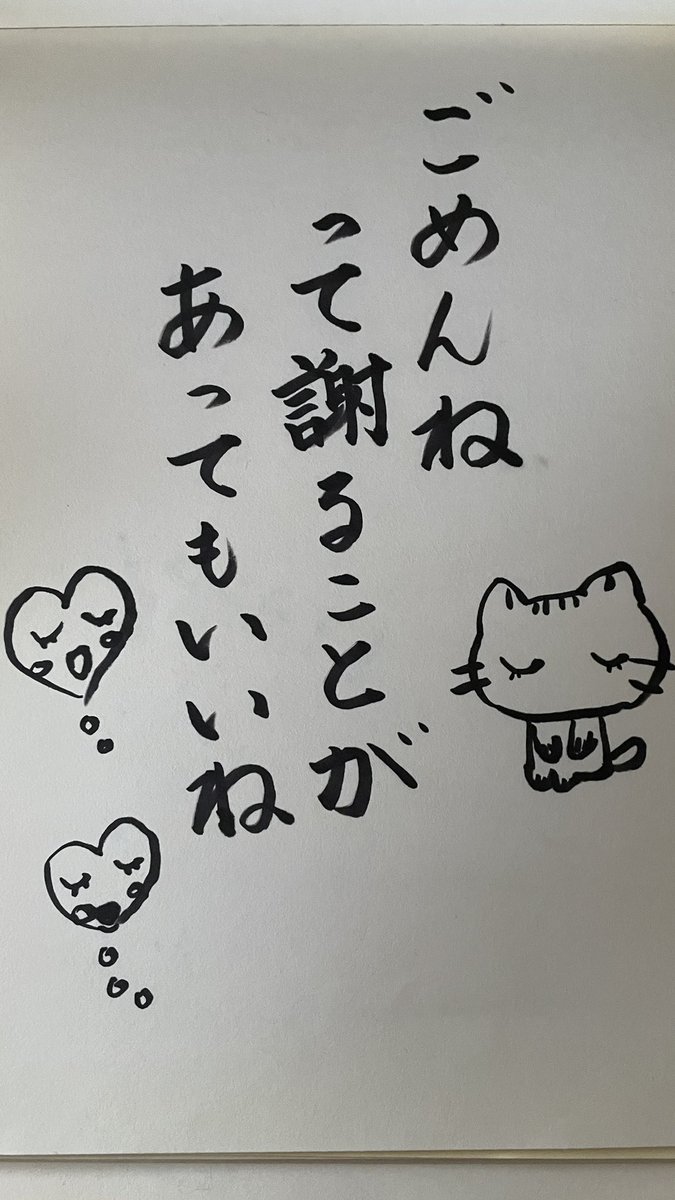 ごめんね
って謝ることが
あってもいいね